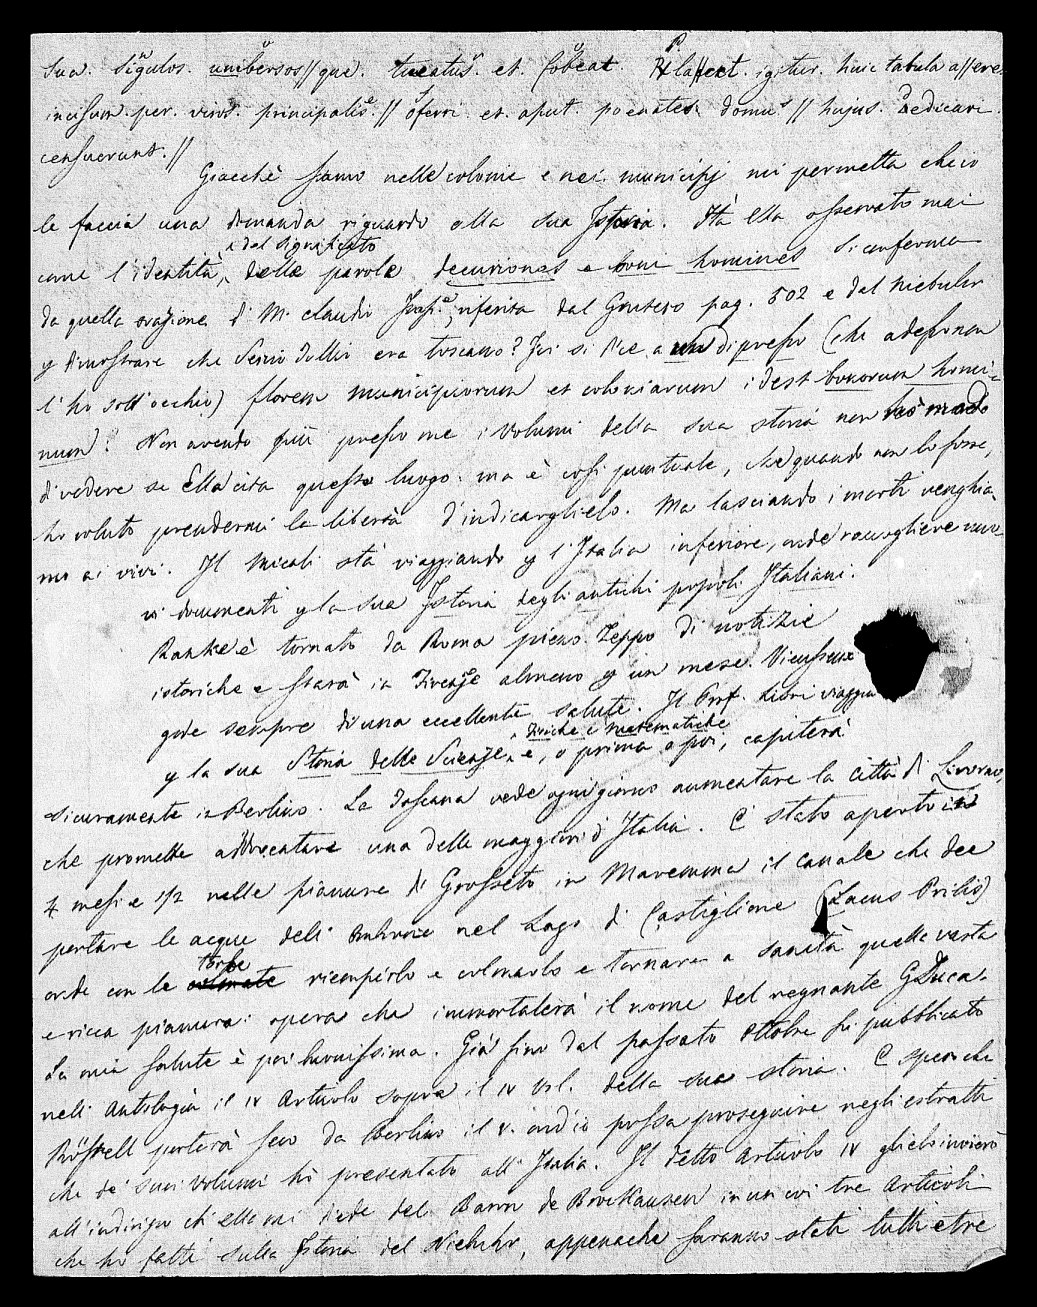 sua. sigulos. unibersos // que. tueatur. et. fobeat. Placet. igitur. huic tabula aere
incisam. per. viros. principalis. // oferri. et. aput. poenates domus // hujus. dedicari.
censuerunt. //
Giacchè siamo nelle colonie e nei municipj mi permetta che io
le faccia una domanda riguardo alla sua Istoria. Hà Ella osservato mai
come l'identità, del significato delle parole decuriones e boni homines si conferma
da quella orazione di M. Claudio Imp.e, riferita dal Grutero pag. 502 e dal Niebuhr
p dimostrare che Servio Tullio era toscano? Ivi si dice a un di presso (che adesso non
l'ho sott'occhio) florem municipiorum et coloniarum idest bonorum homi-
num? Non avendo più presso me i volumi della sua storia non hò modo
di vedere se Ella cita questo luogo: ma è così puntuale, che quando non lo fosse,
ho voluto prendermi la libertà d'indicarglielo. Ma lasciando i morti venghia-
mo ai vivi. Il Micali stà viaggiando p l'Italia inferiore, onde raccogliere nuo-
vi documenti p la sua Istoria degli antichi popoli Italiani.
Ranke è tornato da Roma pieno zeppo di notizie
istoriche e starà in Firenze almeno p un mese. Vieusseux
gode sempre di una eccellente salute. Il Prof. Libri viaggia
p la sua Storia delle Scienze fisiche e matematiche e, o prima o poi, capiterà
sicuramente in Berlino. La Toscana vede ogni giorno aumentare la città di Livorno,
che promette addiventare una delle maggiori d'Italia. È stato aperto in
4 mesi e 1/2 nelle pianure di Grosseto in Maremma il canale che dee
portare le acque dell'Ombrone nel Lago di Castiglione (Lacus Prilis)
onde con le torbe riempirlo e colmarlo e tornare a sanità quelle vasta
e ricca pianura: opera che immortalerà il nome del regnante GDuca.
La mia salute è poi buonissima. Già fino dal passato ottobre fu pubblicato
nell'Antologia il IV Articolo sopra il IV Vol. della sua storia. E spero che
Röstell porterà seco da Berlino il V. ond'io possa proseguire negli estratti
che de' suoi volumi hò presentato all'Italia. Il detto Articolo IV glielo invierò
all'indirizzo ch'ella mi diede del Baron de Brockausen in un coi tre Articoli
che ho fatti sulla Istoria del Niebuhr, appenachè saranno stati tutti e tre